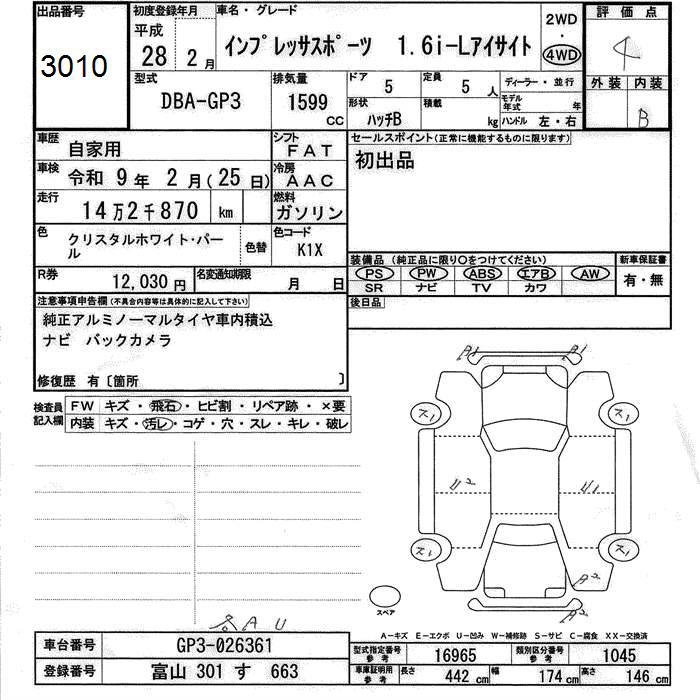 出品番号
3010
初度登録年月
平成
28 2 月
車名・グレード
インプレッサスポーツ 1.6i-Lアイサイト
2WD
・
4WD
評価点
4
外装 内装
B
型式
DBA-GP3
排気量
1599
CC
ドア
5
定員
5 人
形状
ハッチB
積載
kg
ディーラー・並行
モデル
年式 年
ハンドル 左・右
車歴
自家用
シフト
FAT
車検
令和 9 年 2 月(25 日)
冷房
AAC
走行
14 万 2 千 870 km
燃料
ガソリン
色
クリスタルホワイト・パール
色替
色コード
K1X
R券
12,030 円
名変通知期限
月 日
セールスポイント(正常に機能するものに限ります)
初出品
装備品(純正品に限り〇をつけてください)
PS PW ABS エアB AW
SR ナビ TV カワ
新車保証書
有・無
後日品
注意事項申告欄(不具合内容等は具体的に記入して下さい)
純正アルミノーマルタイヤ車内積込
ナビ バックカメラ
修復歴 有〔箇所 〕
検査員
記入欄
FW キズ・飛石・ヒビ割・リペア跡・×要
内装 キズ・汚レ・コゲ・穴・スレ・キレ・破レ
A1 A1
ス1 ス1
U2 U1
ス1 ス1
A2
A2
スペア
AU
A-キズ E-エクボ U-凹み W-補修跡 S-サビ C-腐食 XX-交換済
車台番号
GP3-026361
登録番号
富山 301 す 663
型式指定番号
参考
16965
類別区分番号
参考
1045
車庫証明用
参考
長さ
442 cm
幅
174 cm
高さ
146 cm